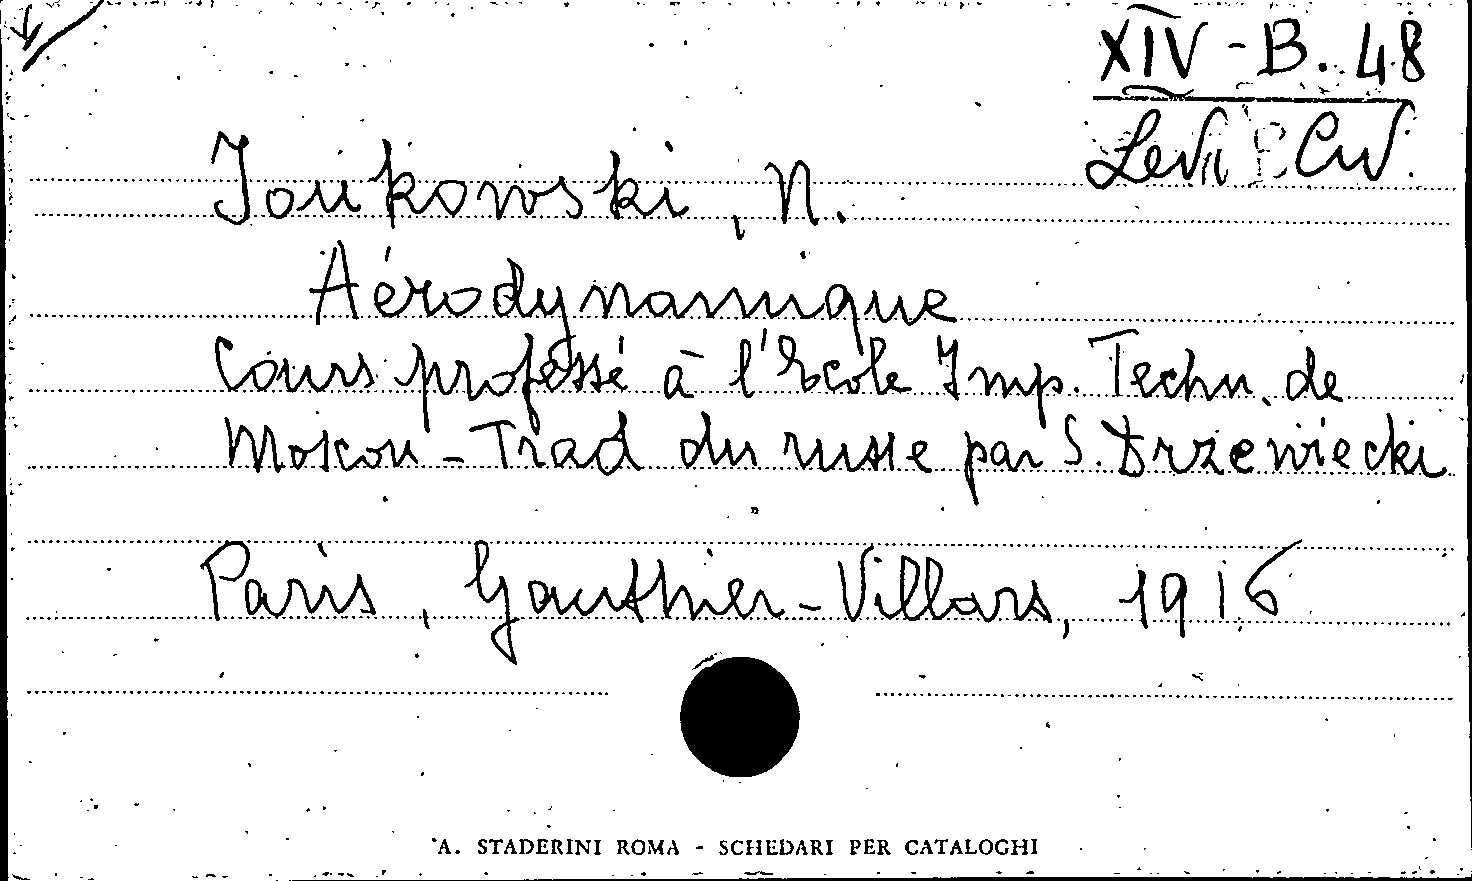 XIV - B. 48
Levi Civ.
Joukowski, N.
Aérodynamique
Cours professé à l'Ecole Imp. Techn. de
Moscou - Trad du russe par S. Drzewiecki
Paris, Gauthier-Villars, 1916
A. STADERINI ROMA - SCHEDARI PER CATALOGHI